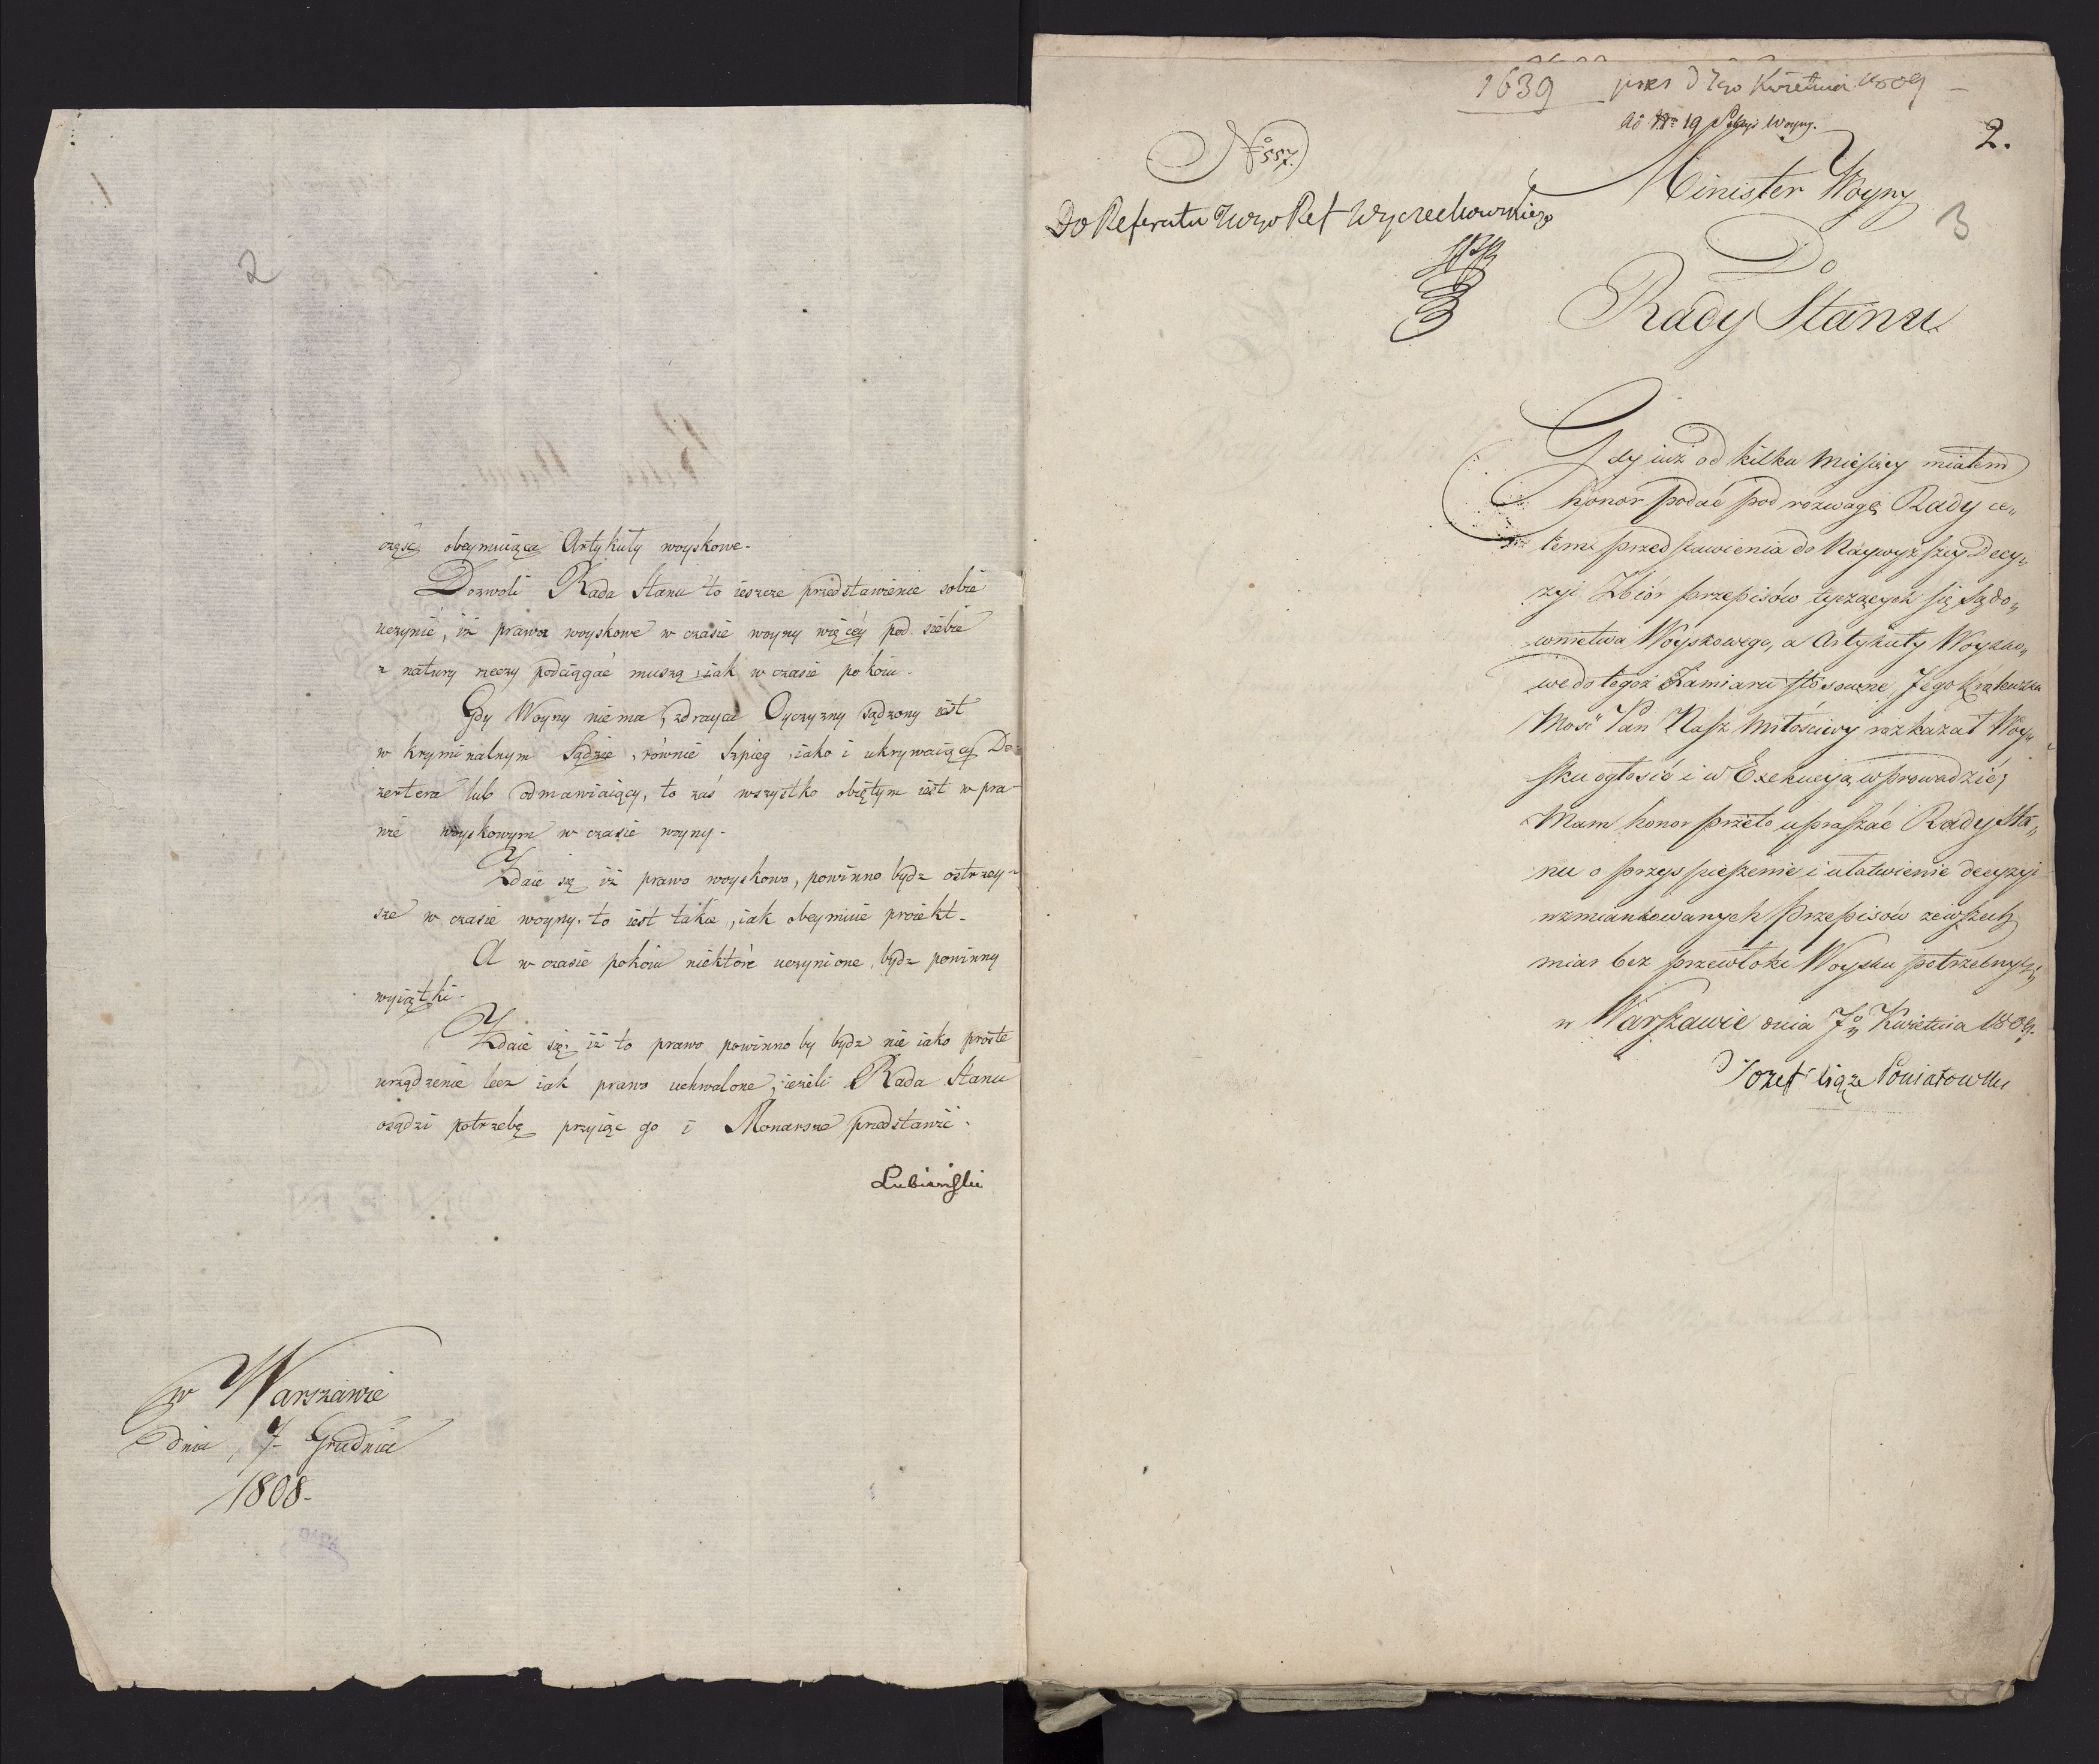 2
część obeymuiąca Artykuły woyskowe.
Dozwoli Rada Stanu to ieszcze przedstawienie sobie
uczynić, iż prawa woyskowe w czasie woyny więcéy pod siebie
z natury rzeczy podciągać muszą, iak w czasie pokóiu.
Gdy Woyny nie ma, zdrayca Oyczyzny sądzony iest
w kryminalnym Sądzie, równie Szpieg, iako i ukrywaiący De-
zertera lub odmawiaiący, to zaś wszystko obiętym iest w pra-
wie woyskowym w czasie woyny.
Zdaie się iż prawo woyskowo, powinno bydz ostrzey-
sze w czasie woyny. to iest takie, iak obeymuie proiekt.
A w czasie pokóiu niektóre uczynione, bydz powinny
wyiątki.
Zdaie się, iż to prawo powinno by bydz nie iako proste
urządzenie lecz iak prawo uchwalone, ieżeli Rada Stanu
osądzi potrzebę przyiąć go i Monarsze przedstawić.
Lubieński
w Warszawie
dnia 7. Grudnia
1808.
1639 pres d 7go Kwietnia 1809
ad Nro 19 Sekcyi Woyny.
2.
No 557.
Minister Woyny
3
Do Referatu Jwgo Ref Wyczechowskiego
Do
Rady Stanu
Gdy iuż od kilku Miesięcy miałem
honor podać pod rozwagę Rady ce„
lem przedstawienia do Naywyższey Decy„
zyi Zbiór przepisów tyczących się Sądo„
wnictwa Woyskowego, a Artykuły Woysko„
we do tegoż Zamiaru stósowne Jego Królewska
Mość Pan Nasz Miłościwy rozkazał Woy„
sku ogłosić i w Exekucyą wprowadzić;
Mam honor przeto upraszać Rady Sta„
nu o przyspieszenie i ułatwienie decyzyi
wzmiankowanych Przepisów zewszech
miar bez przewłoki Woysku potrzebnych,
w Warszawie dnia 7o Kwietnia 1809.
Jozef Xiąże Poniatowski